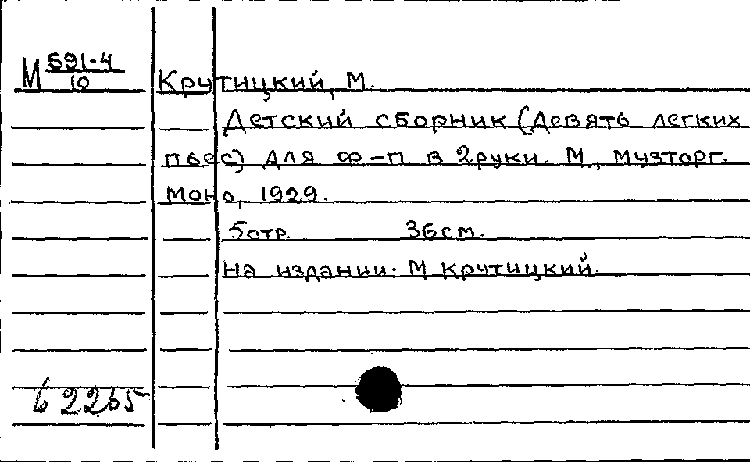 М 591-4
10
Крутицкий, М.
Детский сборник (Девять легких
пьес) для ф-п в 2руки. М., Музторг.
МОНО, 1929.
5стр. 36см.
На издании: М Крутицкий.
62265